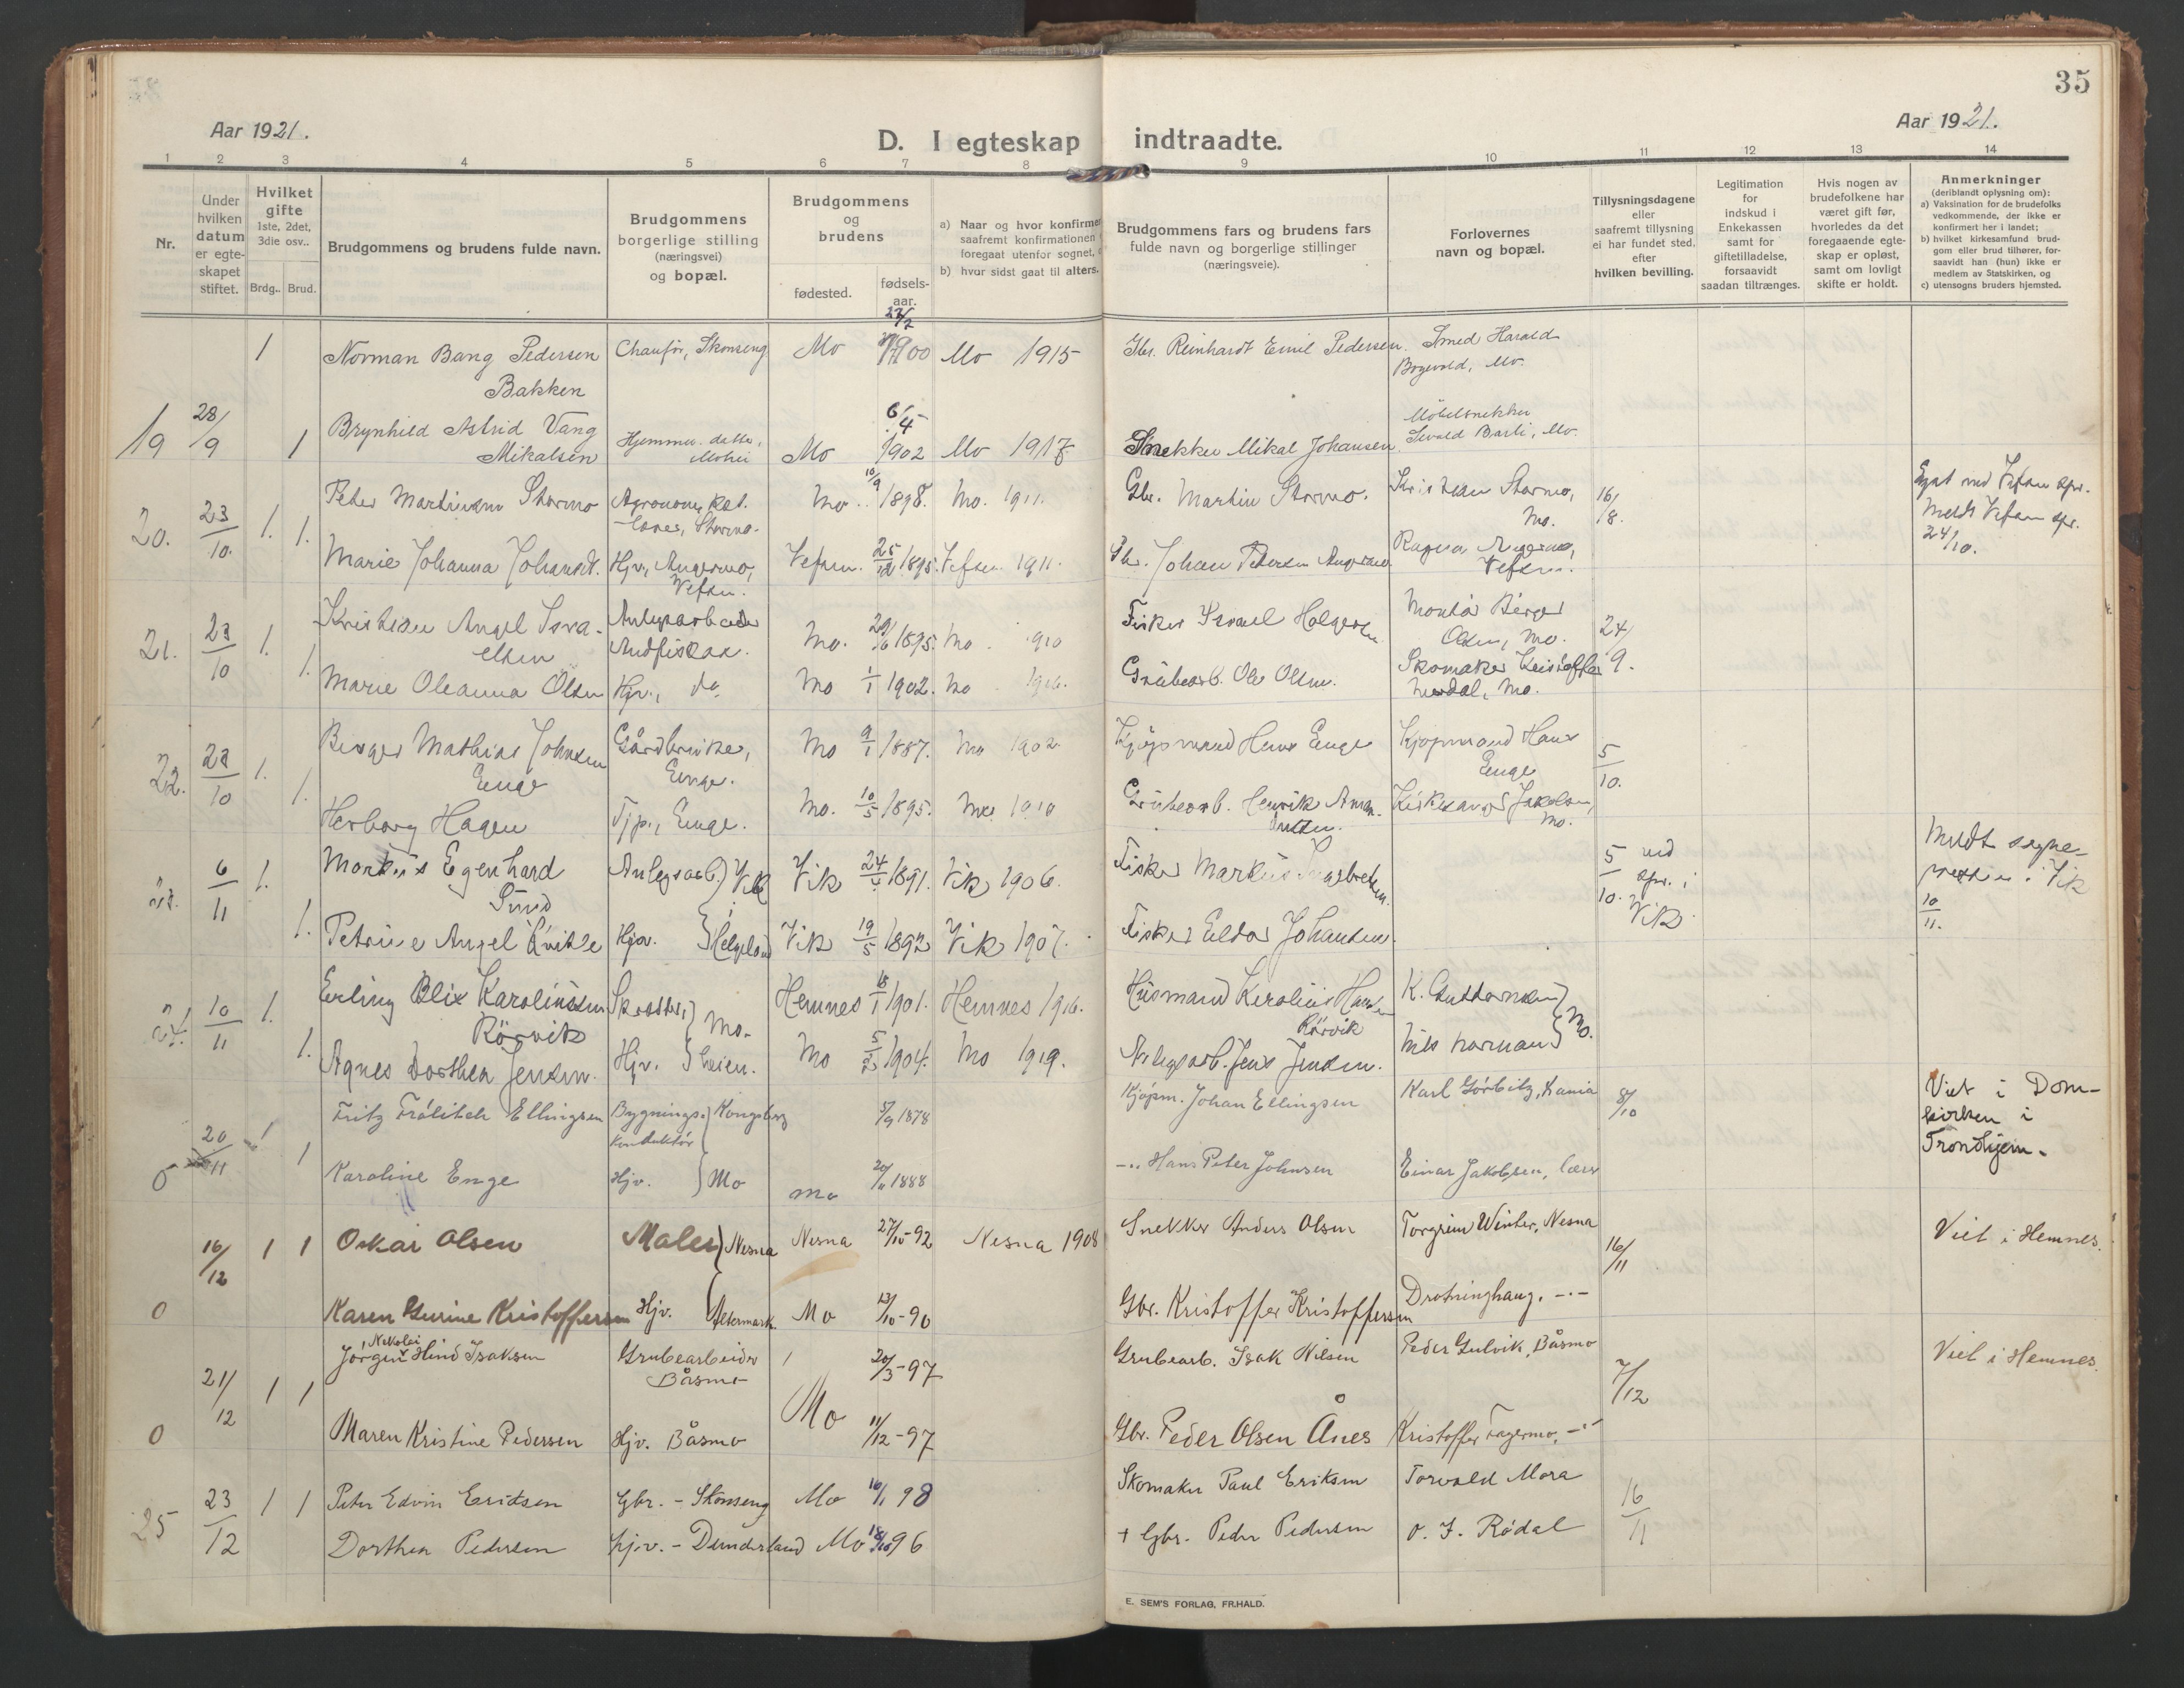 35
Aar 1921.
Aar 1921.
D. I egteskap indtraadte.
1 2 3 4 5 6 7 8 9 10 11 12 13 14
Nr.
Under hvilken datum er egteskapet stiftet.
Hvilket gifte 1ste, 2det, 3die osv..
Brdg.. Brud.
Brudgommens og brudens fulde navn.
Brudgommens borgerlige stilling (næringsvei) og bopæl.
Brudgommens og brudens
fødested.
fødsels-aar.
a) Naar og hvor konfirme
saafremt konfirmationen
foregaat utenfor sognet,
b) hvor sidst gaat til alters.
Brudgommens fars og brudens fars
fulde navn og borgerlige stillinger
(næringsveie).
Forlovernes
navn og bopæl.
Tillysningsdagene
eller
saafremt tillysning
ei har fundet sted,
efter
hvilken bevilling.
Legitimation
for
indskud i
Enkekassen
samt for
giftetilladelse,
forsaavidt
saadan tiltrænges.
Hvis nogen av
brudefolkene har
været gift før,
hvorledes da det
foregaaende egte-
skap er opløst,
samt om lovligt
skifte er holdt.
Anmerkninger
(deriblandt oplysning om):
a) Vaksination for de brudefolks
vedkommende, der ikke er
konfirmert her i landet;
b) hvilket kirkesamfund brud-
gom eller brud tilhører, for-
saavidt han (hun) ikke er
medlem av Statskirken, og
c) utensogns bruders hjemsted.
1 Norman Bang Pedersen Chaufør, Skonseng Mo 27/2 1900 Mo 1915 Gbr. Reinhardt Emil Pedersen. Smed Harald
Bakken Mo.
19 28/9 1 Brynhild Astrid Vang Hjemmev. datter, Mo 6/4 1902 Mo 1917 Snekker Mikal Johansen Møbelsnekker
Mikalsen Mohei Sevald Barli, Mo.
20. 23/10. 1. Peter Martinsen Stormo Agronom, Stormo. Mo. 10/9 1898. Mo. 1911. Gbr. Martin Stormo. Kristian Stormo, Mo. 16/8.
24/10.
1. Marie Johanna Johansdt. Hjv., Angermo, Vefsn. Vefsn. 25/12 1895. Vefsn 1911. Gbr. Johan Pedersen Ragna Angermo, Vefsn.
21. 23/10 1. Kristian Angel Isra- Anlegsarbeider Mo. 29/6 1895. Mo. 1910 Fisker Israel Holgersen Montør Birger 24/9.
elsen Andfiskaa. Olsen, Mo.
1. Marie Oleanna Olsen Hjv., do. Mo 1/1 1902. Mo 1916. Grubearb. Ole Olsen. Skomaker Kristoffer
Mo.
22. 23/10 1. Birger Mathias Johnsen Gårdbruker, Mo 9/1 1887. Mo 1902 Kjøpmand Hans Enge Kjøpmand Hans 5/10.
Enge Enge. Enge
1. Herborg Hagen Tjp., Enge. Mo. 10/5 1895. Mo 1910 Grubearb. Henrik Aman- Kirkesanger Jakobsen,
dussen. Mo.
6/11 1. Markus Egenhard Anlegsarb. Vik Vik 24/4 1891. Vik 1906. Fisker Markus Ingebretsen. 5/10. ved spr. i Vik Meldt sogne-
Sund presten i Vik
1. Petrine Angel Kvitle Hjv. Helgeland Vik 19/5 1892 Vik 1907. Fisker Eldor Johansen. 10/11.
24. 10/11 1. Erling Blix Karoliussen Skredder, Mo- Hemnes 18/1 1901. Hemnes 1916. Husmand Karolius Hansen K. Guttormsen
Rörvik Rörvik
1. Agnes Dorthea Jensen. Hjv. heien. Mo 5/2 1904. Mo 1919. Anlegsarb. Jens Jensen. Nils Norman Mo.
0 20/11 1 Fritz Frölich Ellingsen Bygnings- Kongsberg 5/9 1878 Kjøpm. Johan Ellingsen Karl Görbitz, Rania 8/10 Viet i Dom-
konduktør kirken i
1 Karoline Enge Hjv. Mo Mo 20/11 1888 -"- Hans Peter Johnsen Einar Jakobsen, lærer Trondhjem.
16/12 1 1 Oskar Olsen Maler Nesna Nesna 27/10-92 Nesna 1908 Snekker Anders Olsen Torgrim Winter, Nesna 16/11 Viet i Hemnes.
0 Karen Gurine Kristoffersen Hjv. Altermark. Mo 13/10-90 Gbr. Kristoffer Kristoffersen Drotninghaug. -"-
21/12 1 1 Jörgen Nikolai Hind Isaksen Grubearbeider 20/3-97 Grubearb. Isak Nilsen Peder Gulvik, Båsmo 7/12 Viet i Hemnes.
Båsmo
0 Maren Kristine Pedersen Hjv. Båsmo Mo 11/12-97 Gbr. Peder Olsen Ånes Kristoffer Fagermo, -"-
25 23/12 1 1 Peter Edvin Eriksen Gbr. - Skonseng Mo 16/1 98 Skomaker Paul Eriksen Torvald Mora 16/11
Dorthea Pedersen hjv. - Dunderland Mo 18/10 96 + Gbr. Peder Pedersen O. J. Rödal
E. SEM'S FORLAG, FR.HALD.